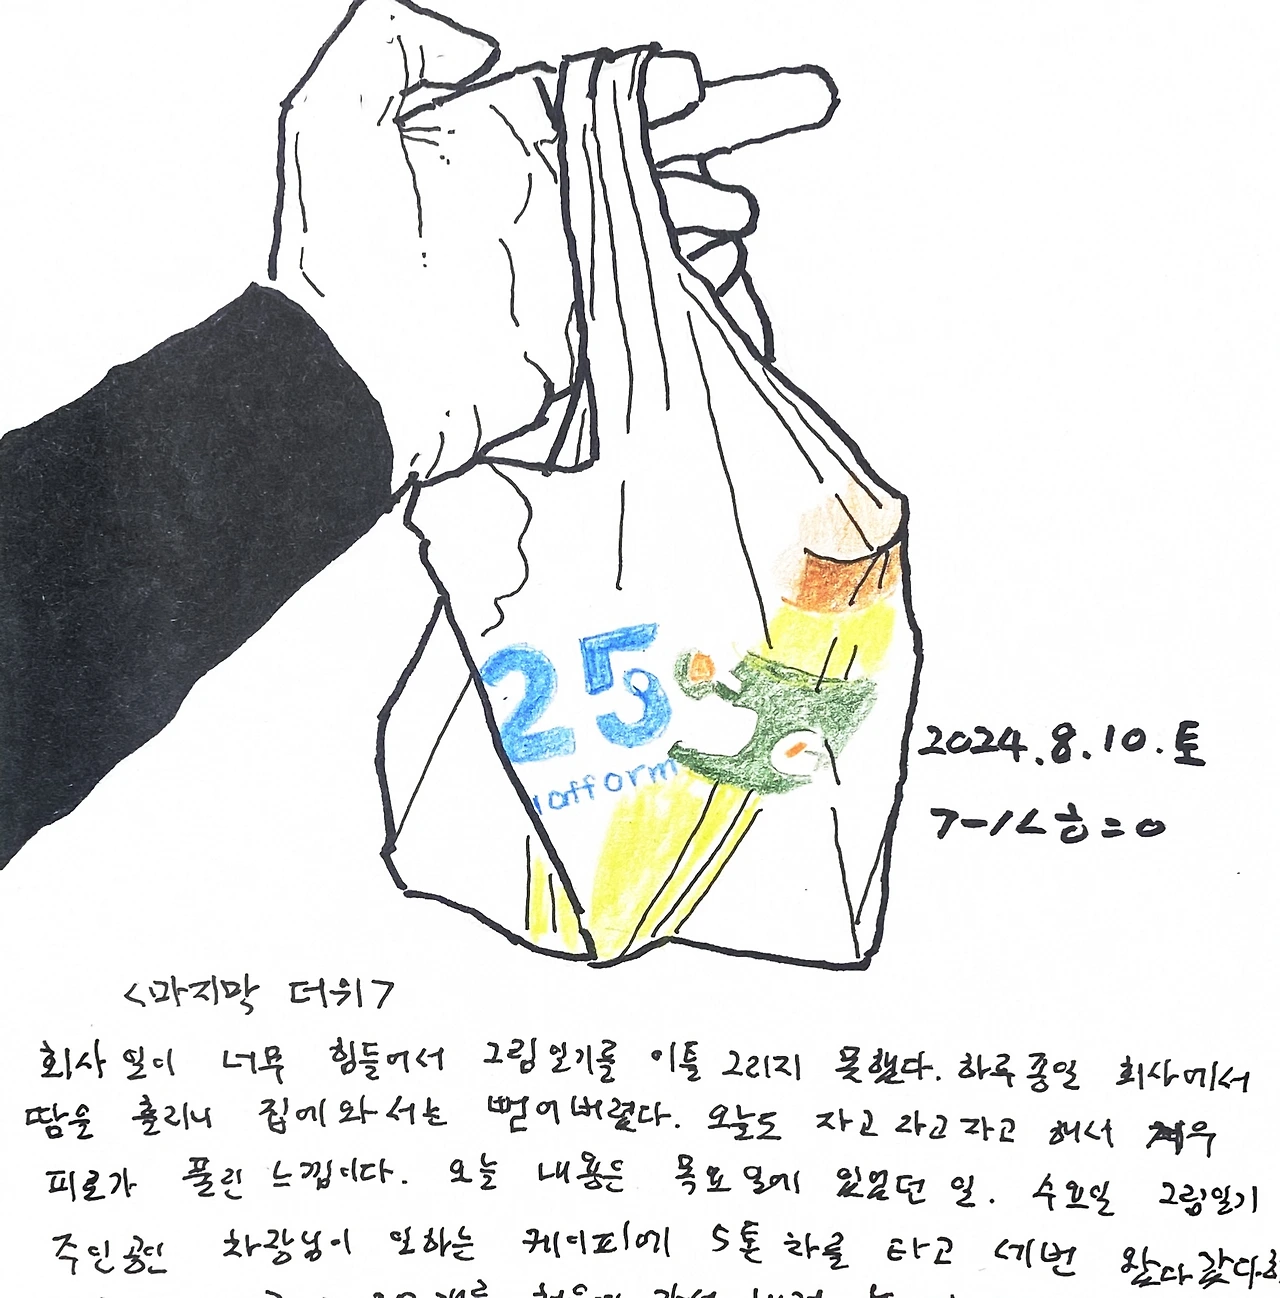 25
latform
2024.8.10.토
<마지막 더위>
회사 일이 너무 힘들어서 그림일기를 이틀 그리지 못했다. 하루종일 회사에서
땀을 흘리니 집에 와서는 뻗어버렸다. 오늘도 자고 자고 자고 해서 겨우
피로가 풀린 느낌이다. 오늘 내용은 목요일에 있었던 일. 수요일 그림일기
주인공인 차장님이 일하는 케이피에 5톤 차를 타고 세번 왔다갔다.